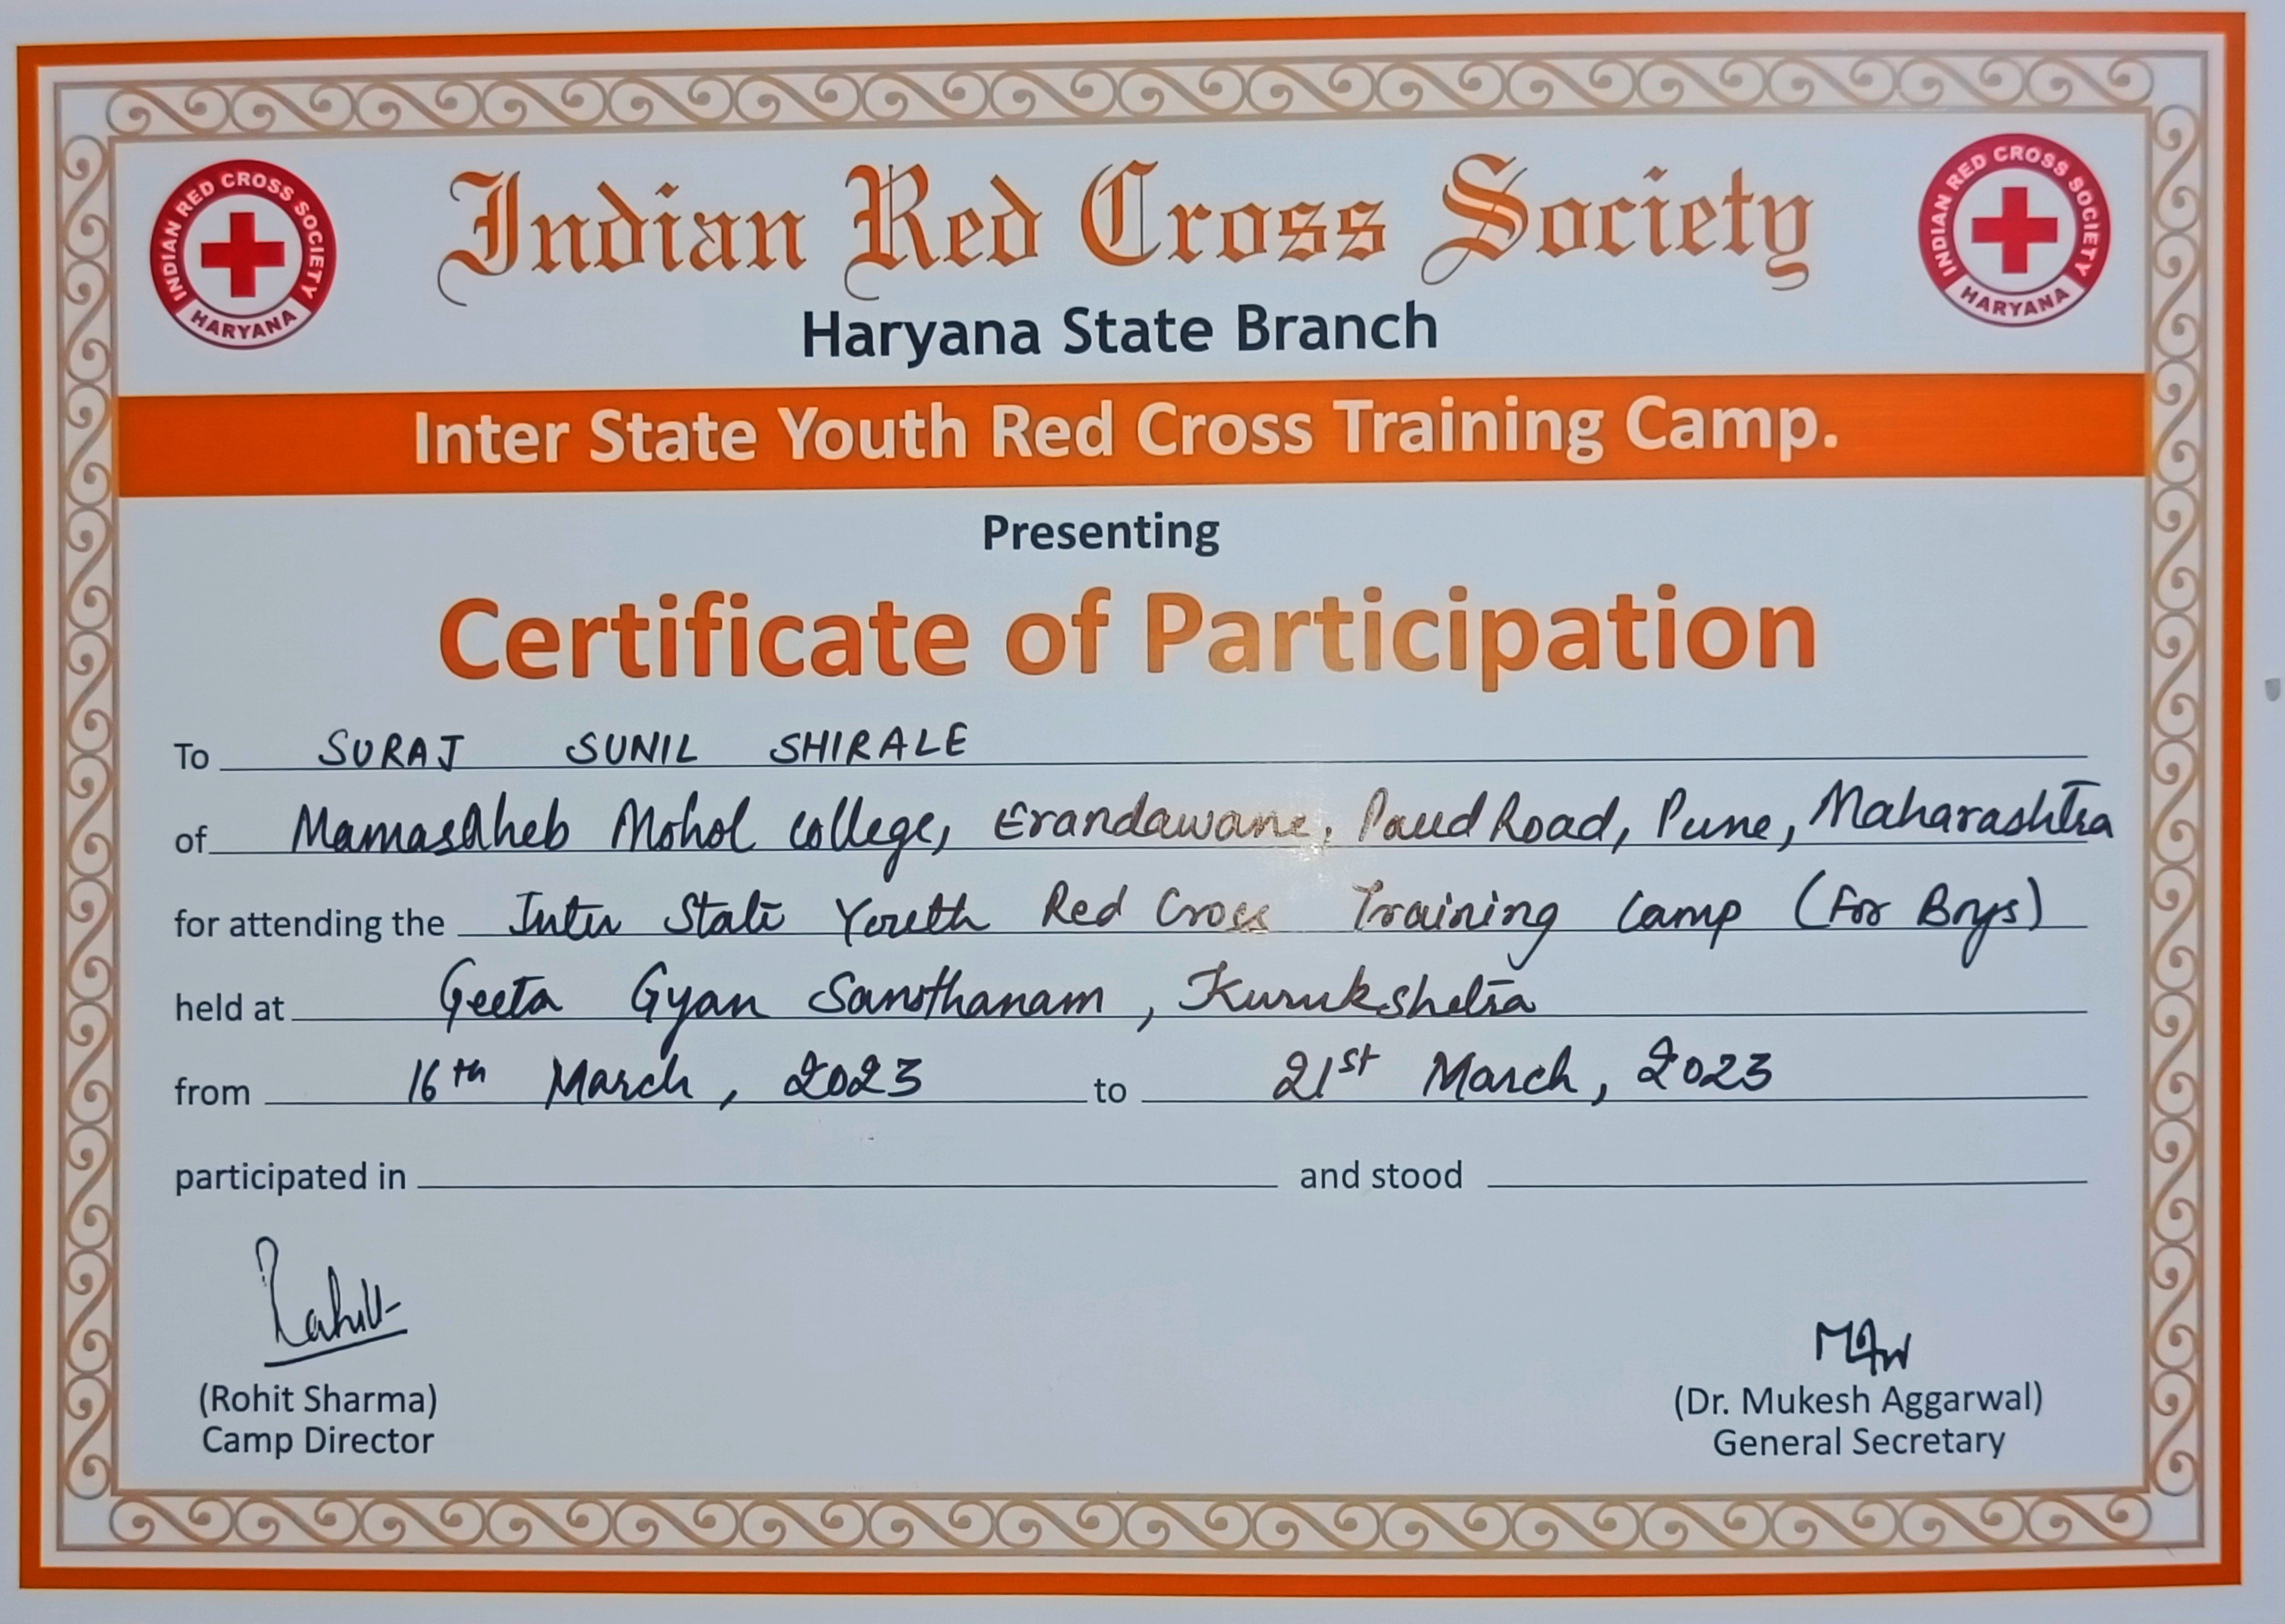 INDIAN RED CROSS SOCIETY
HARYANA
Indian Red Cross Society
INDIAN RED CROSS SOCIETY
HARYANA
Haryana State Branch
Inter State Youth Red Cross Training Camp.
Presenting
Certificate of Participation
To SURAJ SUNIL SHIRALE
of Mamasaheb Mohol College, Erandawane, Paud Road, Pune, Maharashtra
for attending the Inter State Youth Red Cross Training Camp (For Boys)
held at Geeta Gyan Sansthanam, Kurukshetra
from 16th March, 2023 to 21st March, 2023
participated in and stood
(Rohit Sharma) (Dr. Mukesh Aggarwal)
Camp Director General Secretary